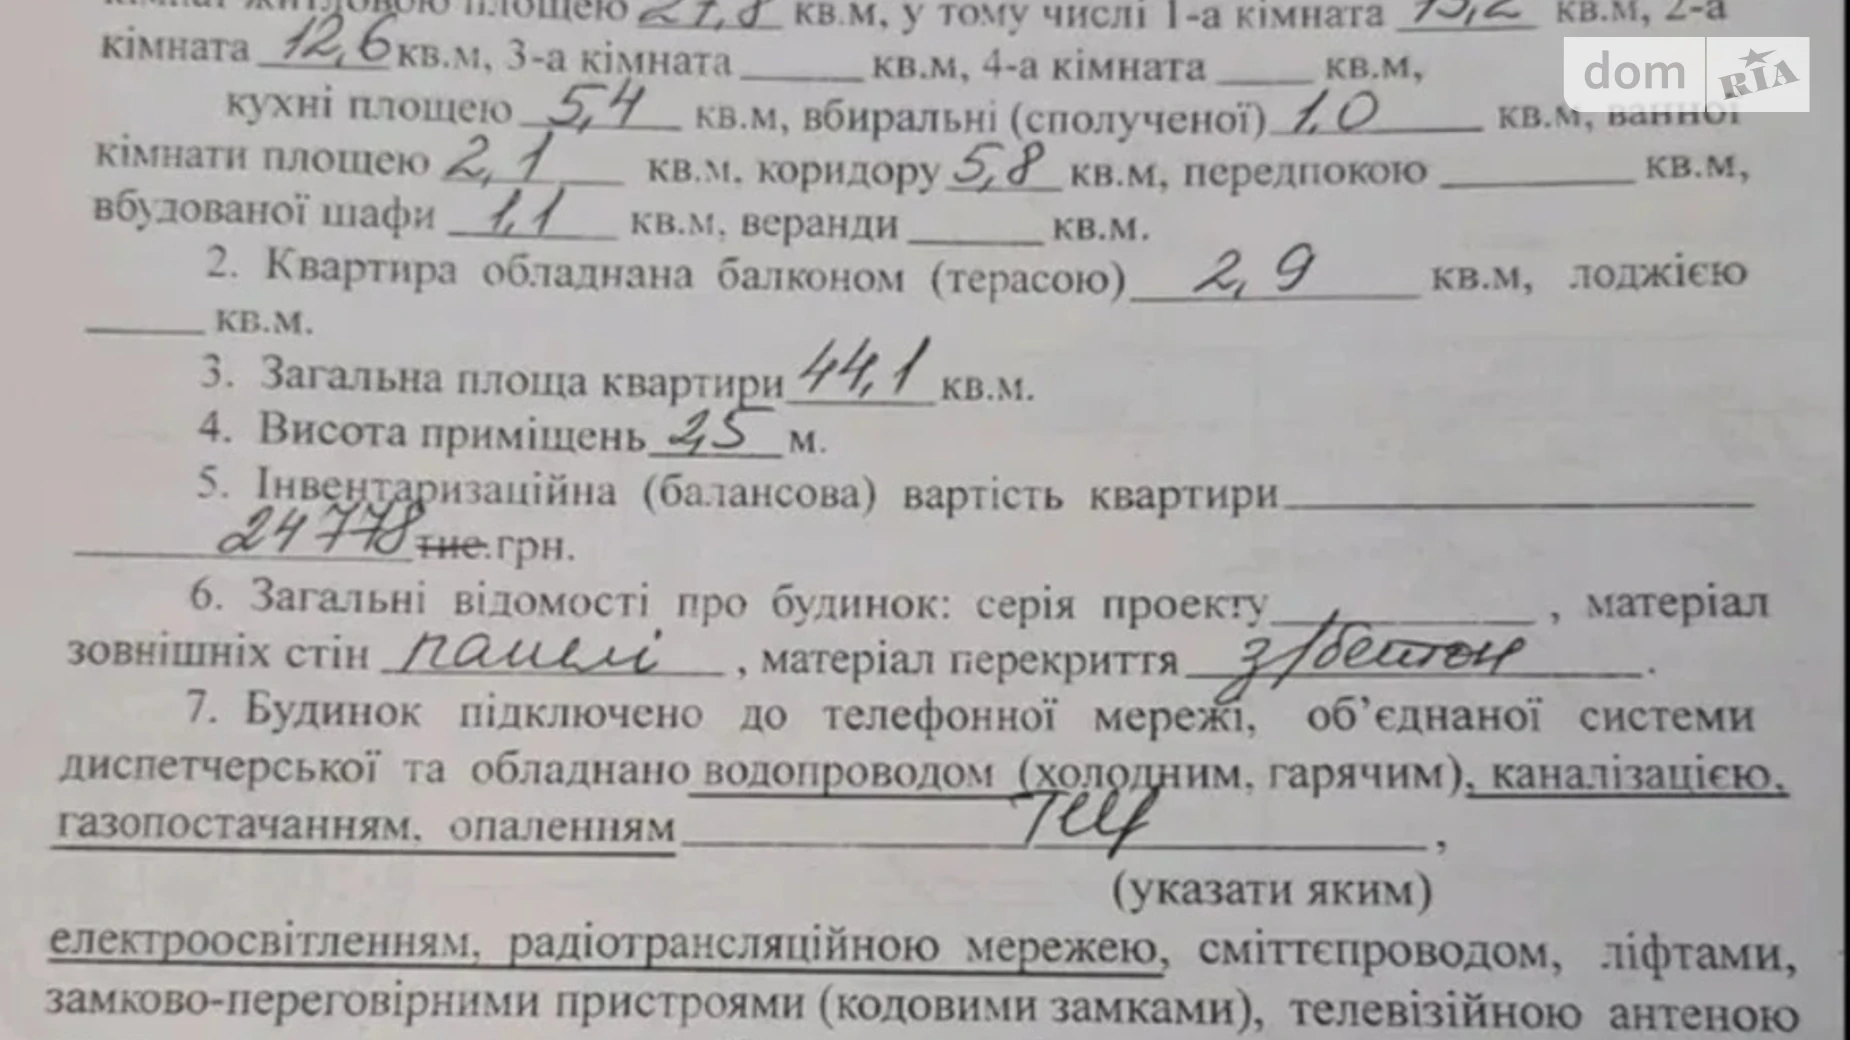 кімнат житловою площею 27,8 кв.м, у тому числі 1-а кімната 15,2 кв.м, 2-а
dom RIA
кімната 12,6 кв.м, 3-а кімната ____ кв.м, 4-а кімната ____ кв.м,
кухні площею 5,4 кв.м, вбиральні (сполученої) 1,0 кв.м, ванної
кімнати площею 2,1 кв.м, коридору 5,8 кв.м, передпокою ____ кв.м,
вбудованої шафи 1,1 кв.м, веранди ____ кв.м.
2. Квартира обладнана балконом (терасою) 2,9 кв.м, лоджією
____ кв.м.
3. Загальна площа квартири 44,1 кв.м.
4. Висота приміщень 2,5 м.
5. Інвентаризаційна (балансова) вартість квартири ____
24778 тис.грн.
6. Загальні відомості про будинок: серія проекту ____, матеріал
зовнішніх стін панелі, матеріал перекриття з/бетон.
7. Будинок підключено до телефонної мережі, об’єднаної системи
диспетчерської та обладнано водопроводом (холодним, гарячим), каналізацією,
газопостачанням, опаленням ТЕЦ,
(указати яким)
електроосвітленням, радіотрансляційною мережею, сміттєпроводом, ліфтами,
замково-переговірними пристроями (кодовими замками), телевізійною антеною